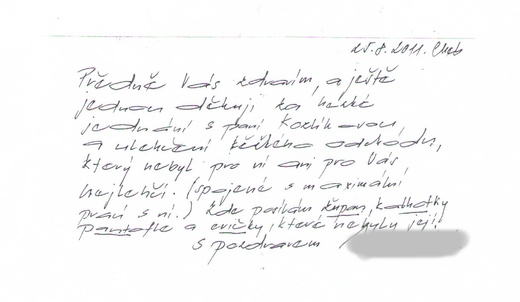 25.8.2011. Cheb
Předně Vás zdravím, a ještě
jednou děkuji za hezké
jednání s paní Kozlíkovou
a ulehčení těžkého odchodu,
který nebyl pro ní ani pro Vás
nejlehčí. (spojené s maximální
prací s ní.) Zde posílám župan, kalhotky
pantofle a cvičky, které nebyly její.
s pozdravem